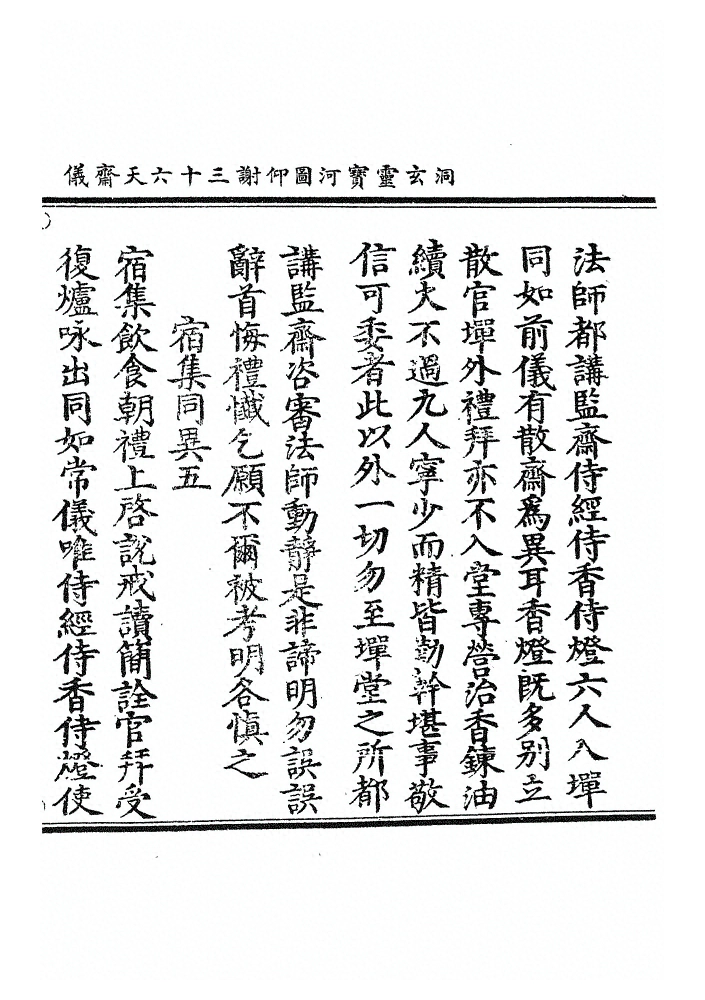 洞玄靈寶河圖仰謝三十六天齋儀
法師都講監齋侍經侍香侍燈六人入墠
同如前儀有散齋爲異耳香燈既多別立
散官墠外禮拜亦不入堂專營治香鍊油
續火不過九人寧少而精皆勤幹堪事敬
信可委者此以外一切勿至墠堂之所都
講監齋咨審法師動靜是非諦明勿誤誤
辭首悔禮懺乞願不爾被考明各慎之
宿集同異五
宿集飲食朝禮上啓說戒讀簡詮官拜受
復爐咏出同如常儀唯侍經侍香侍燈使